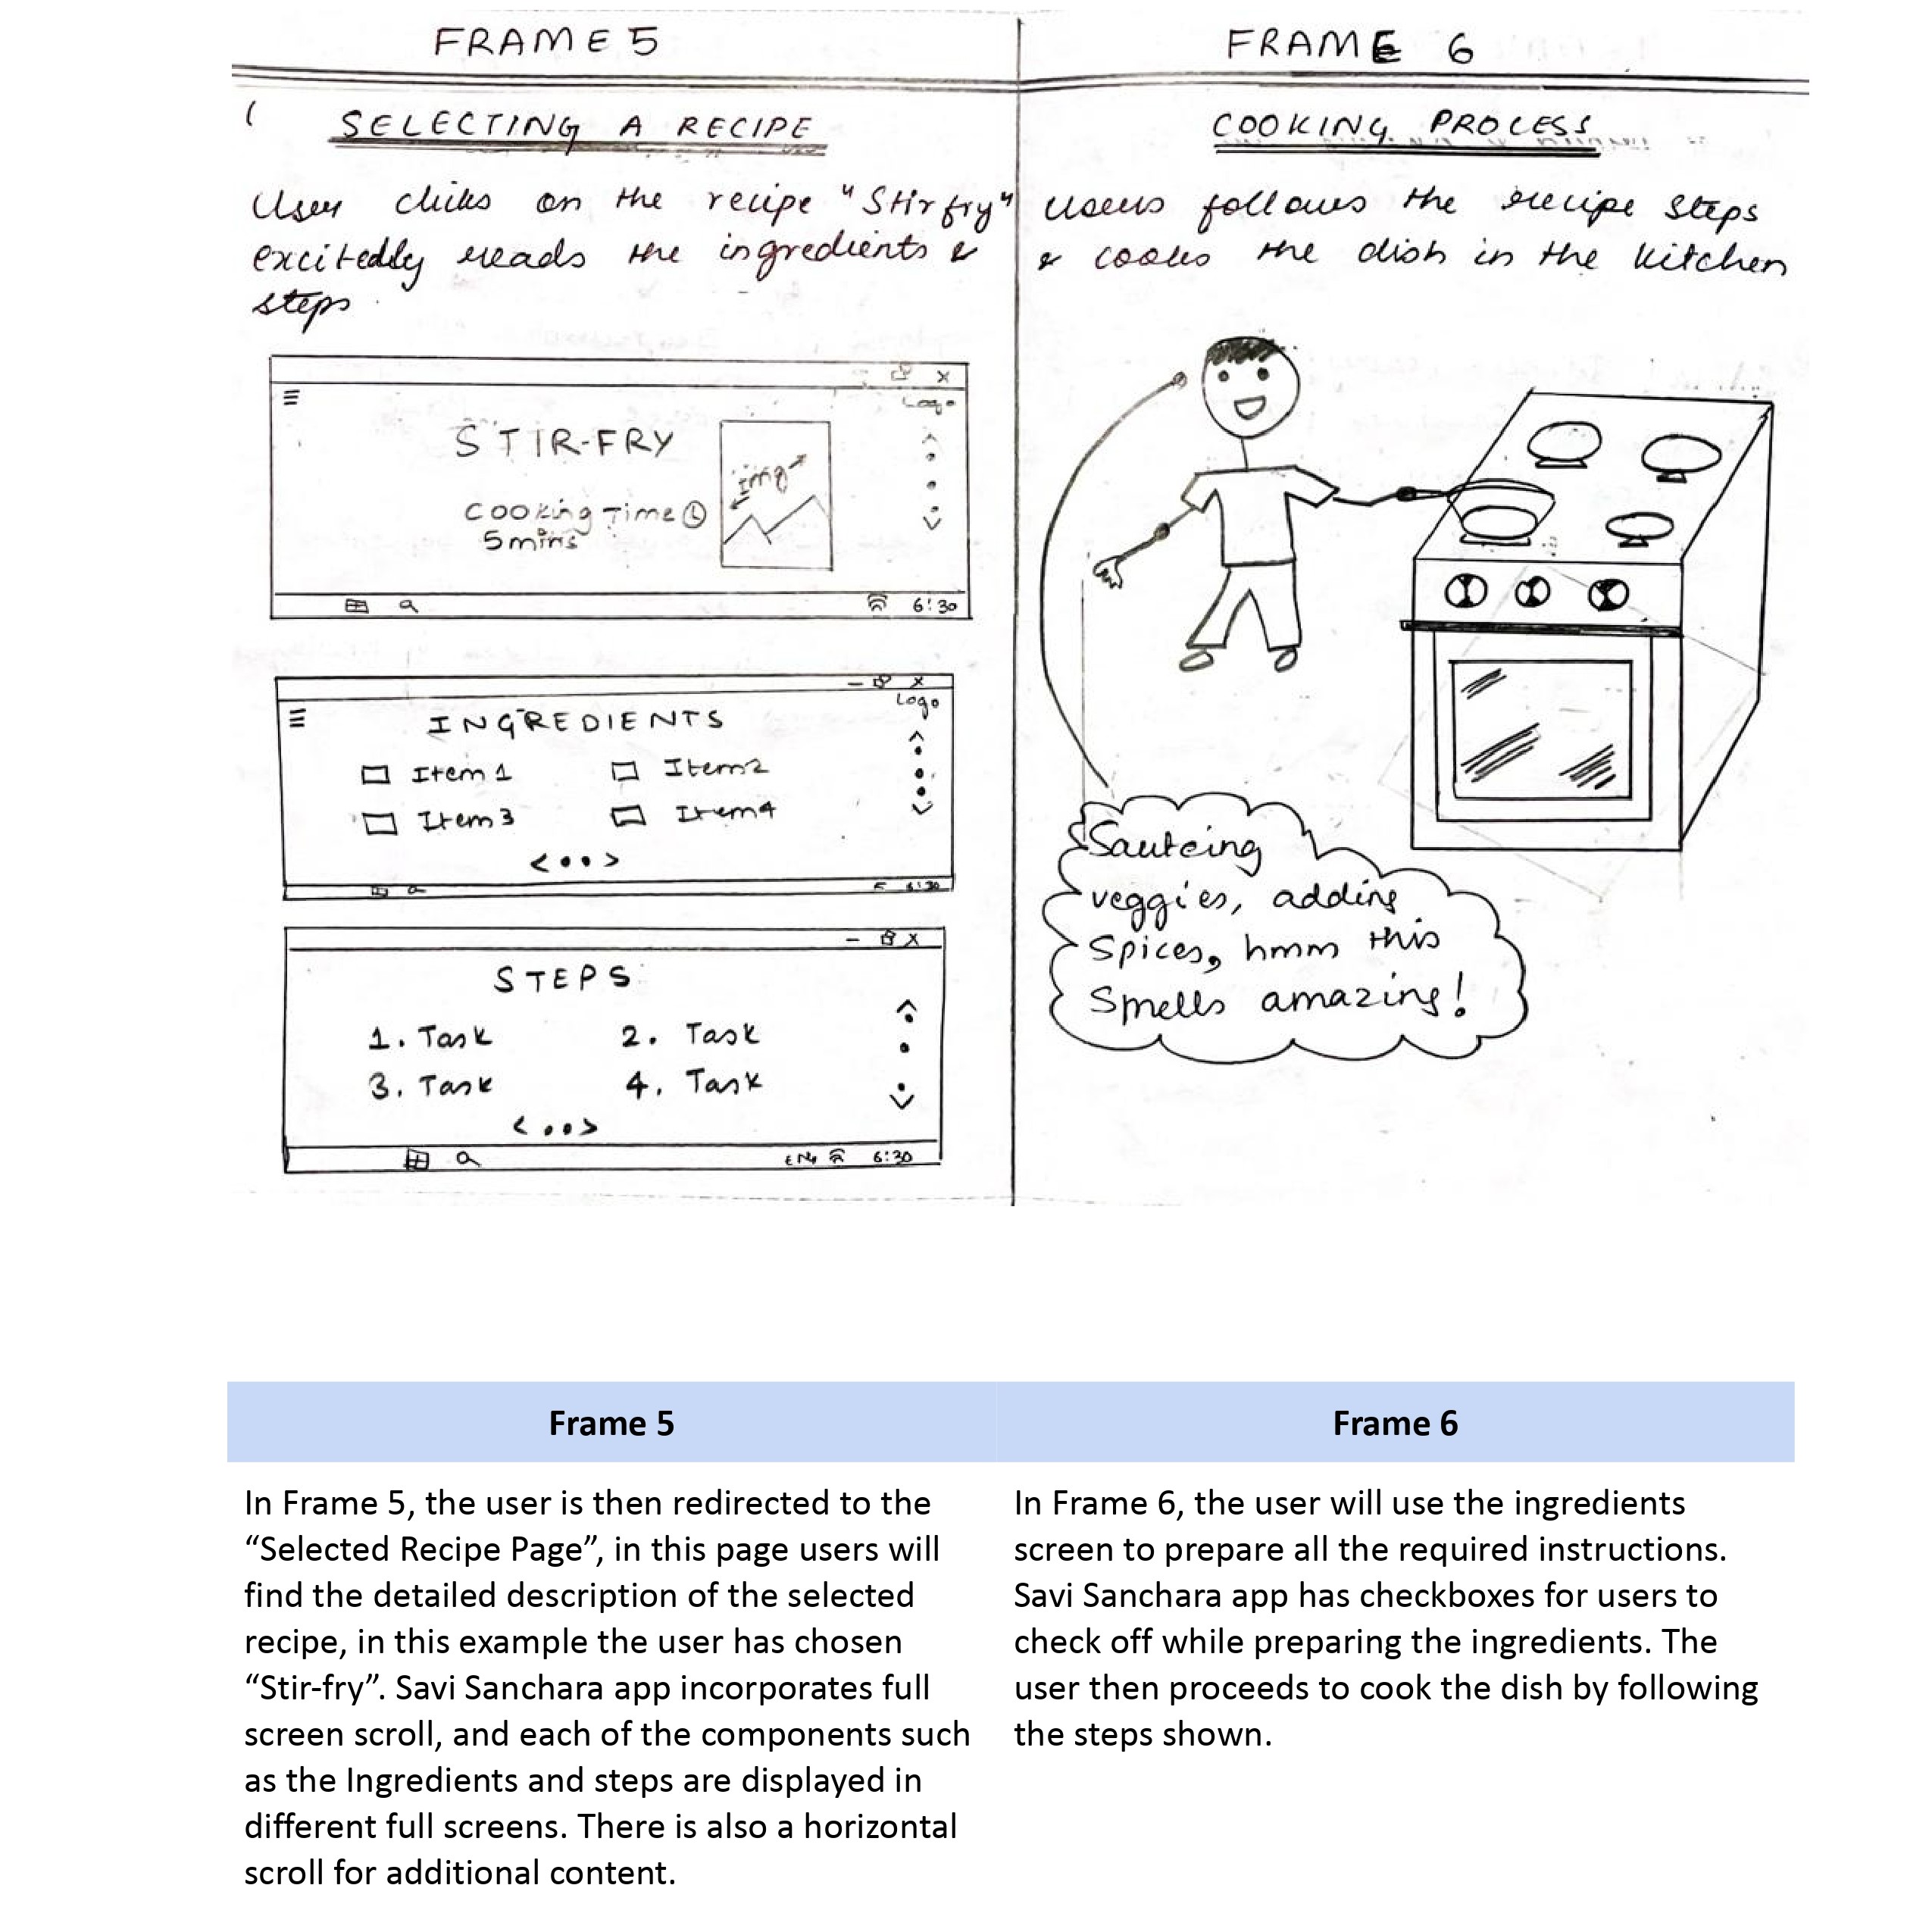 FRAME 5
SELECTING A RECIPE
User clicks on the recipe "Stir fry"
excitedly reads the ingredients &
steps
X
Logo
STIR-FRY
img
Cooking Time
5 mins
6:30
- X
Logo
INGREDIENTS
Item 1 Item 2
Item 3 Item 4
< •• >
6:30
- X
STEPS
1. Task 2. Task
3. Task 4. Task
< •• >
ENG 6:30
FRAME 6
COOKING PROCESS
users follows the recipe steps
& cooks the dish in the kitchen
Sauteing
veggies, adding
Spices, hmm this
Smells amazing!
Frame 5
In Frame 5, the user is then redirected to the
“Selected Recipe Page”, in this page users will
find the detailed description of the selected
recipe, in this example the user has chosen
“Stir-fry”. Savi Sanchara app incorporates full
screen scroll, and each of the components such
as the Ingredients and steps are displayed in
different full screens. There is also a horizontal
scroll for additional content.
Frame 6
In Frame 6, the user will use the ingredients
screen to prepare all the required instructions.
Savi Sanchara app has checkboxes for users to
check off while preparing the ingredients. The
user then proceeds to cook the dish by following
the steps shown.